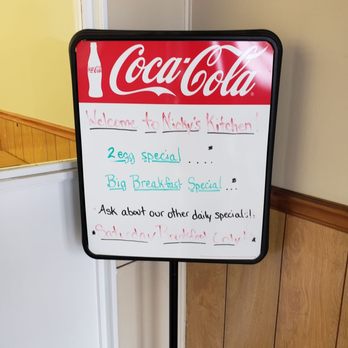 Coca-Cola
Welcome to Nicky's Kitchen!
2 egg special ....
Big Breakfast Special ...
Ask about our other daily specials.
Saturday Breakfast